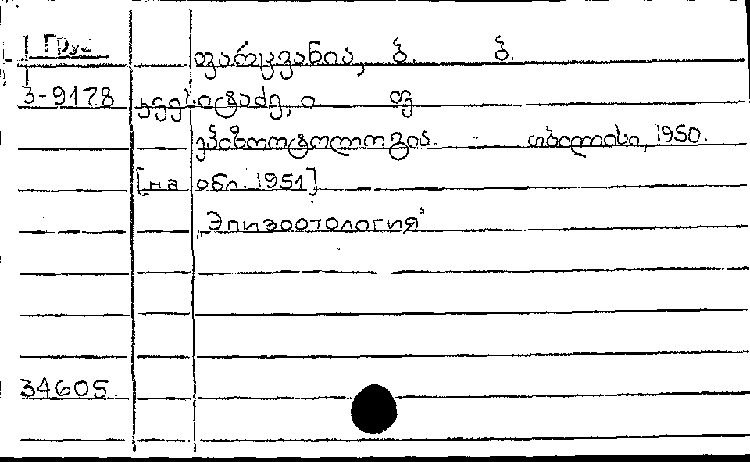 Груз
ფარცვანია, ბ. ბ.
3-9178
ი ფ
ეპიზოოტოლოგია. - თბილისი, 1950.
[на обл. 1951]
"Эпизоотология"
34605